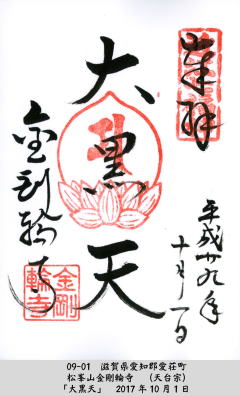 奉拝
平成廿九年
十月一日
大黒天
金剛輪寺
金剛
輪寺
09-01 滋賀県愛知郡愛荘町
松峯山金剛輪寺 (天台宗)
「大黒天」 2017年10月1日